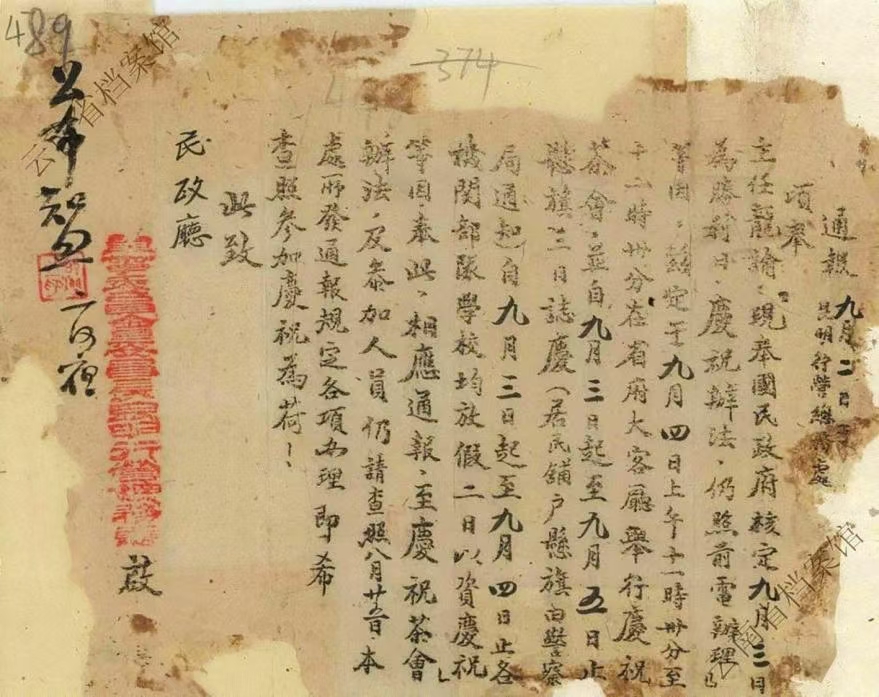 489
374
通報 九月二日
昆明行營總務處
頃奉
主任龍諭：現奉國民政府核定九月三日
為勝利日，慶祝辦法，仍照前電辦理」
等因，茲定于九月四日上午十一時卅分至
十二時卅分在省府大客廳舉行慶祝
茶會，並自九月三日起至九月五日止
懸旗三日誌慶（居民舖户懸旗由警察
局通知）自九月三日起至九月四日止各
機関部隊學校均放假二日以資慶祝」
等因奉此，相應通報，至慶祝茶會
辦法，及參加人員仍請查照八月廿五日，本
處所發通報規定各項办理即希
查照參加慶祝為荷！
此致
民政廳
軍事委員會委員長昆明行營總務處 啟
云南省档案馆
云南省档案馆